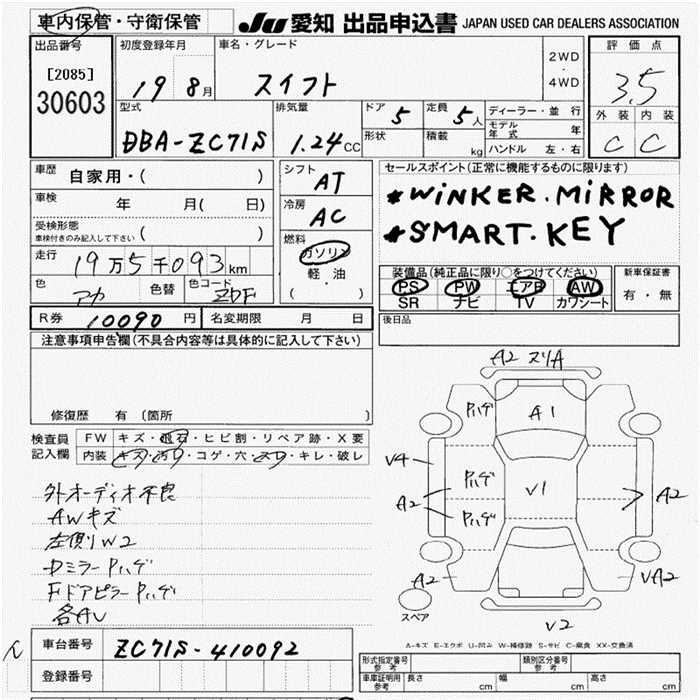 車内保管・守衛保管 JU 愛知 出品申込書 JAPAN USED CAR DEALERS ASSOCIATION
出品番号 初度登録年月 車名・グレード 評価点
[2085] 2WD
・
30603 19 8月 スイフト 4WD 3.5
型式 排気量 ドア 5 定員 5人 ディーラー・並行 外装 内装
DBA-ZC71S 1.24CC 形状 積載 kg モデル年式 年 C C
ハンドル 左・右
車歴 自家用・( ) シフト AT セールスポイント(正常に機能するものに限ります)
車検 年 月( 日) 冷房 AC *WiNKER.MiRROR
受検形態 *SMART.KEY
車検付きのみ記入して下さい ( ) 燃料
走行 19万5千093km ガソリン 装備品(純正品に限り○をつけてください) 新車保証書
色 アカ 色替 色コード ZDF 軽・油 PS PW エアB AW 有・無
( ) SR ナビ TV カワシート
R券 10090円 名変期限 月 日 後日品
注意事項申告欄(不具合内容等は具体的に記入して下さい)
修復歴 有 (箇所 )
検査員 FW キズ・飛石・ヒビ割・リペア跡・X要
記入欄 内装 キズ・汚リ・コゲ・穴・スリ・キレ・破レ
外オーディオ不良
AWキズ
左側リW2
Dミラー Pハゲ
Fドアピラー Pハゲ
各AU
A2 ヌリA
Pハゲ A1
V4 Pハゲ V1
A2 Pハゲ A2
A2 VA2
スペア V2
A-キズ E-エクボ U-凹み W-補修跡 S-サビ C-腐食 XX-交換済
車台番号 ZC71S-410092
登録番号
形式指定番号 参考 類別区分番号 参考
車庫証明用 参考 長さ cm 幅 cm 高さ cm